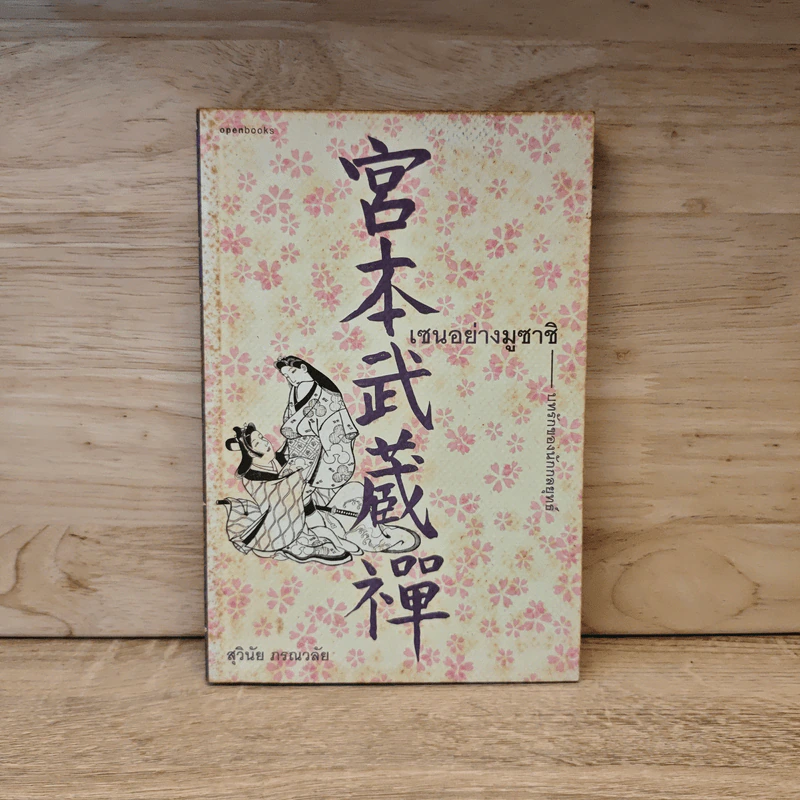 openbooks
宮本武蔵禅
เซนอย่างมูซาชิ
บทรักของนักกลยุทธ์
สุวินัย ภรณวลัย